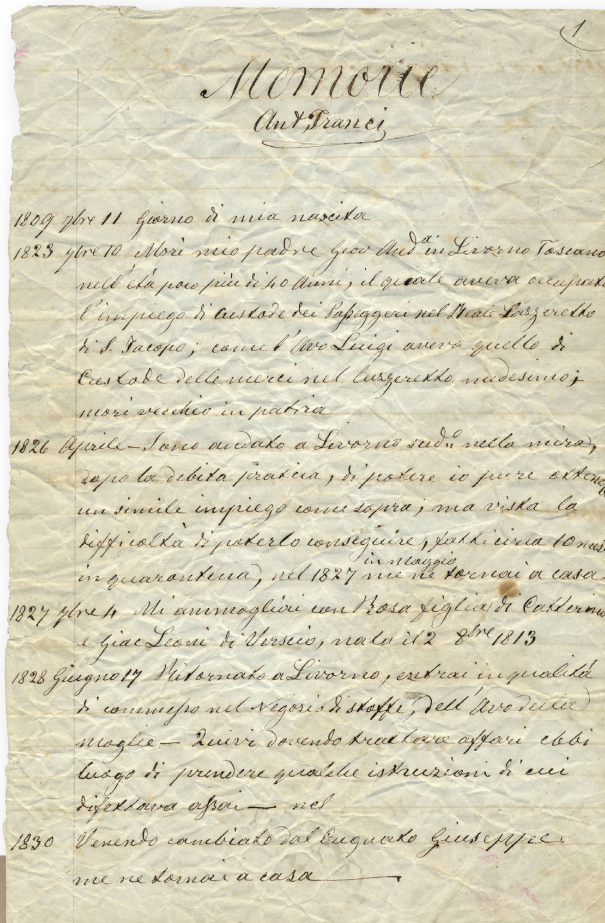 1
Memorie
Ant. Franci
1809 7bre 11 Giorno di mia nascita
1823 7bre 10 Morì mio padre Giov And.a in Livorno Toscano
nell'età poco più di 40 Anni; il quale aveva occupato
l'impiego di Custode dei Passeggeri nel Reale Lazzeretto
di S. Jacopo; come l'Avo Luigi aveva quello di
Custode delle merci nel lazzeretto medesimo;
morì vecchio in patria
1826 Aprile – Sono andato a Livorno sud.o nella mira,
dopo la debita pratica, di potere io pure ottenere
un simile impiego come sopra; ma vista la
difficoltà di poterlo conseguire, fatti circa 10 mesi
in quarantena, nel 1827 in maggio me ne tornai a casa
1827 7bre 4 Mi ammogliai con Rosa figlia di Catterina
e Giac Leoni di Verscio, nata il 2 8bre 1813
1828 Giugno 17 Ritornato a Livorno, entrai in qualità
di commesso nel Negozio di stoffe, dell'Avo della
Moglie – Quivi dovendo trattare affari ebbi
luogo di prendere qualche istruzioni di cui
difettava assai – nel
1830 Venendo cambiato dal Cugnato Giuseppe
me ne tornai a casa —